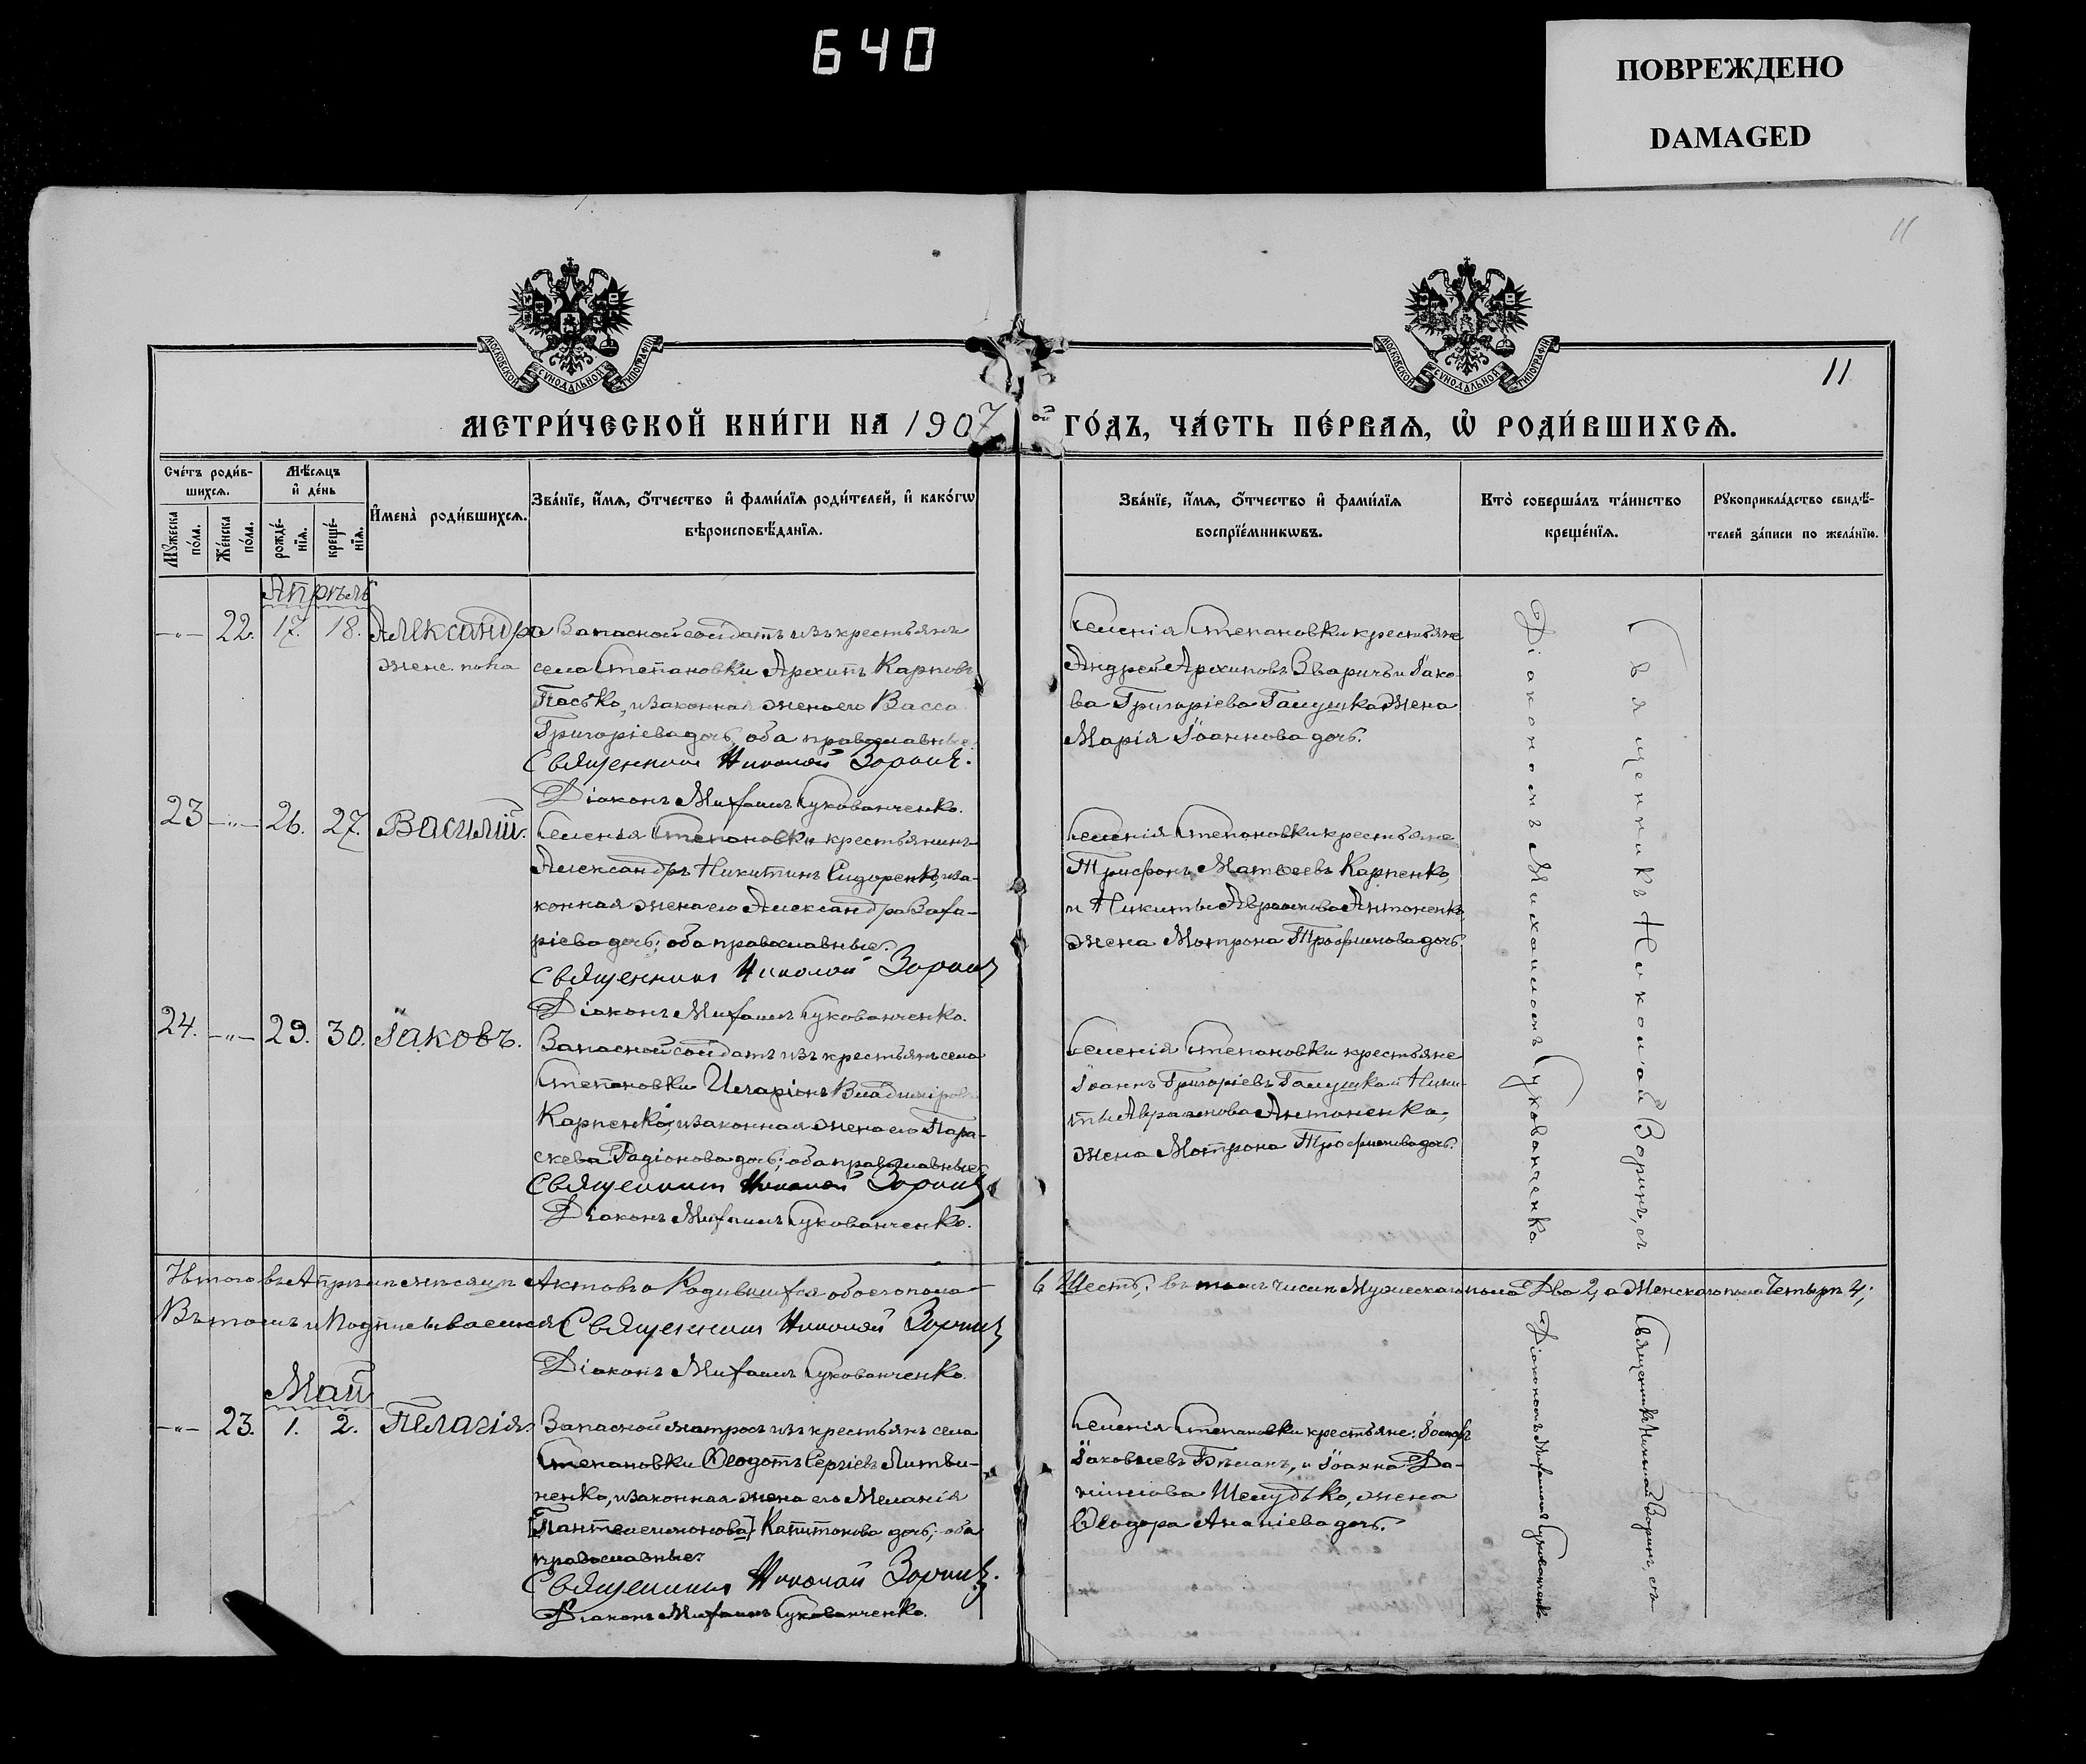 640
ПОВРЕЖДЕНО
DAMAGED
11
МОСКОВСКОЙ СѴНОДАЛЬНОЙ ТИПОГРАФІИ
МОСКОВСКОЙ СѴНОДАЛЬНОЙ ТИПОГРАФІИ
11
МЕТРИ́ЧЕСКОЙ КНИ́ГИ НА 1907 ой ГО́ДЪ, ЧА́СТЬ ПЕ́РВАѦ, Ѡ҆ РОДИ́ВШИХСѦ.
Сче́тъ роди́в-
шихсѧ.
Мѣ́сѧцъ
и҆ де́нь
Мꙋ́жеска по́ла.
Же́нска по́ла.
рожде́-
нїѧ.
креще́-
нїѧ.
И҆мена̀ роди́вшихсѧ.
Зва́нїе, и҆́мѧ, ѻ҆́тчество и҆ фами́лїѧ роди́телей, и҆ како́гѡ
вѣроисповѣ́данїѧ.
Зва́нїе, и҆́мѧ, ѻ҆́тчество и҆ фами́лїѧ
воспрїе́мникѡвъ.
Кто̀ соверша́лъ та́инство
креще́нїѧ.
Рꙋкоприкла́дство свидѣ́-
телей за́писи по жела́нїю.
Апрѣль
22. 17. 18. Александра
женс. пола
Запасной солдатъ изъ крестьянъ
села Степановки Архипъ Карповъ
Паcько, и законная жена его Васса
Григоріева дочь, оба православные.
Священникъ Николай Зоринъ.
Діаконъ Михаилъ Суховатченко.
Селенія Степановки крестьяне
Андрей Архиповъ Зваричъ и Іако-
ва Григоріева Галушка жена
Марія Іоаннова дочь.
23 26. 27. Василій.
Селенія Степановки крестьянинъ
Александръ Никитинъ Сидоренко, и за-
конная жена его Александра Заха-
ріева дочь; оба православные.
Священникъ Николай Зоринъ
Діаконъ Михаилъ Суховатченко.
Селенія Степановки крестьяне
Трифонъ Матвеевъ Карпенко,
и Никиты Авраамова Антоненка,
жена Мотрона Трофимова дочь.
24. 29. 30. Іаковъ.
Запасной солдатъ изъ крестьянъ села
Степановки Иларіонъ Владиміровъ
Карпенко, и законная жена его Пара-
скева Радіонова дочь; оба православные
Священникъ Николай Зоринъ
Діаконъ Михаилъ Суховатченко.
Селенія Степановки крестьяне
Іоаннъ Григоріевъ Галушка и Ники-
ты Авраамова Антоненка,
жена Мотрона Трофимова дочь.
Священникъ Николай Зоринъ, съ
Діакономъ Михаиломъ Суховатченко.
Итого въ Апрѣлѣ мѣсяцѣ Актовъ о Родившихся обоего пола 6 Шесть; въ томъ числѣ Мужескаго пола Два 2, а Женскаго пола Четыре 4;
Въ томъ и Подписываемся Священникъ Николай Зоринъ
Діаконъ Михаилъ Суховатченко.
Май
23. 1. 2. Пелагія.
Запасной матросъ изъ крестьянъ села
Степановки Ѳеодотъ Сергіевъ Литви-
ненко, и законная жена его Меланія
[Пантелеимонова] Капитонова дочь; оба
православные.
Священникъ Николай Зоринъ.
Діаконъ Михаилъ Суховатченко.
Селенія Степановки крестьяне:
Іаковлевъ Бѣланъ, и Іоанна Да-
ніилова Шелудько, жена
Ѳеодора Ананіева дочь.
Священникъ Николай Зоринъ, съ
Діакономъ Михаиломъ Суховатченко.